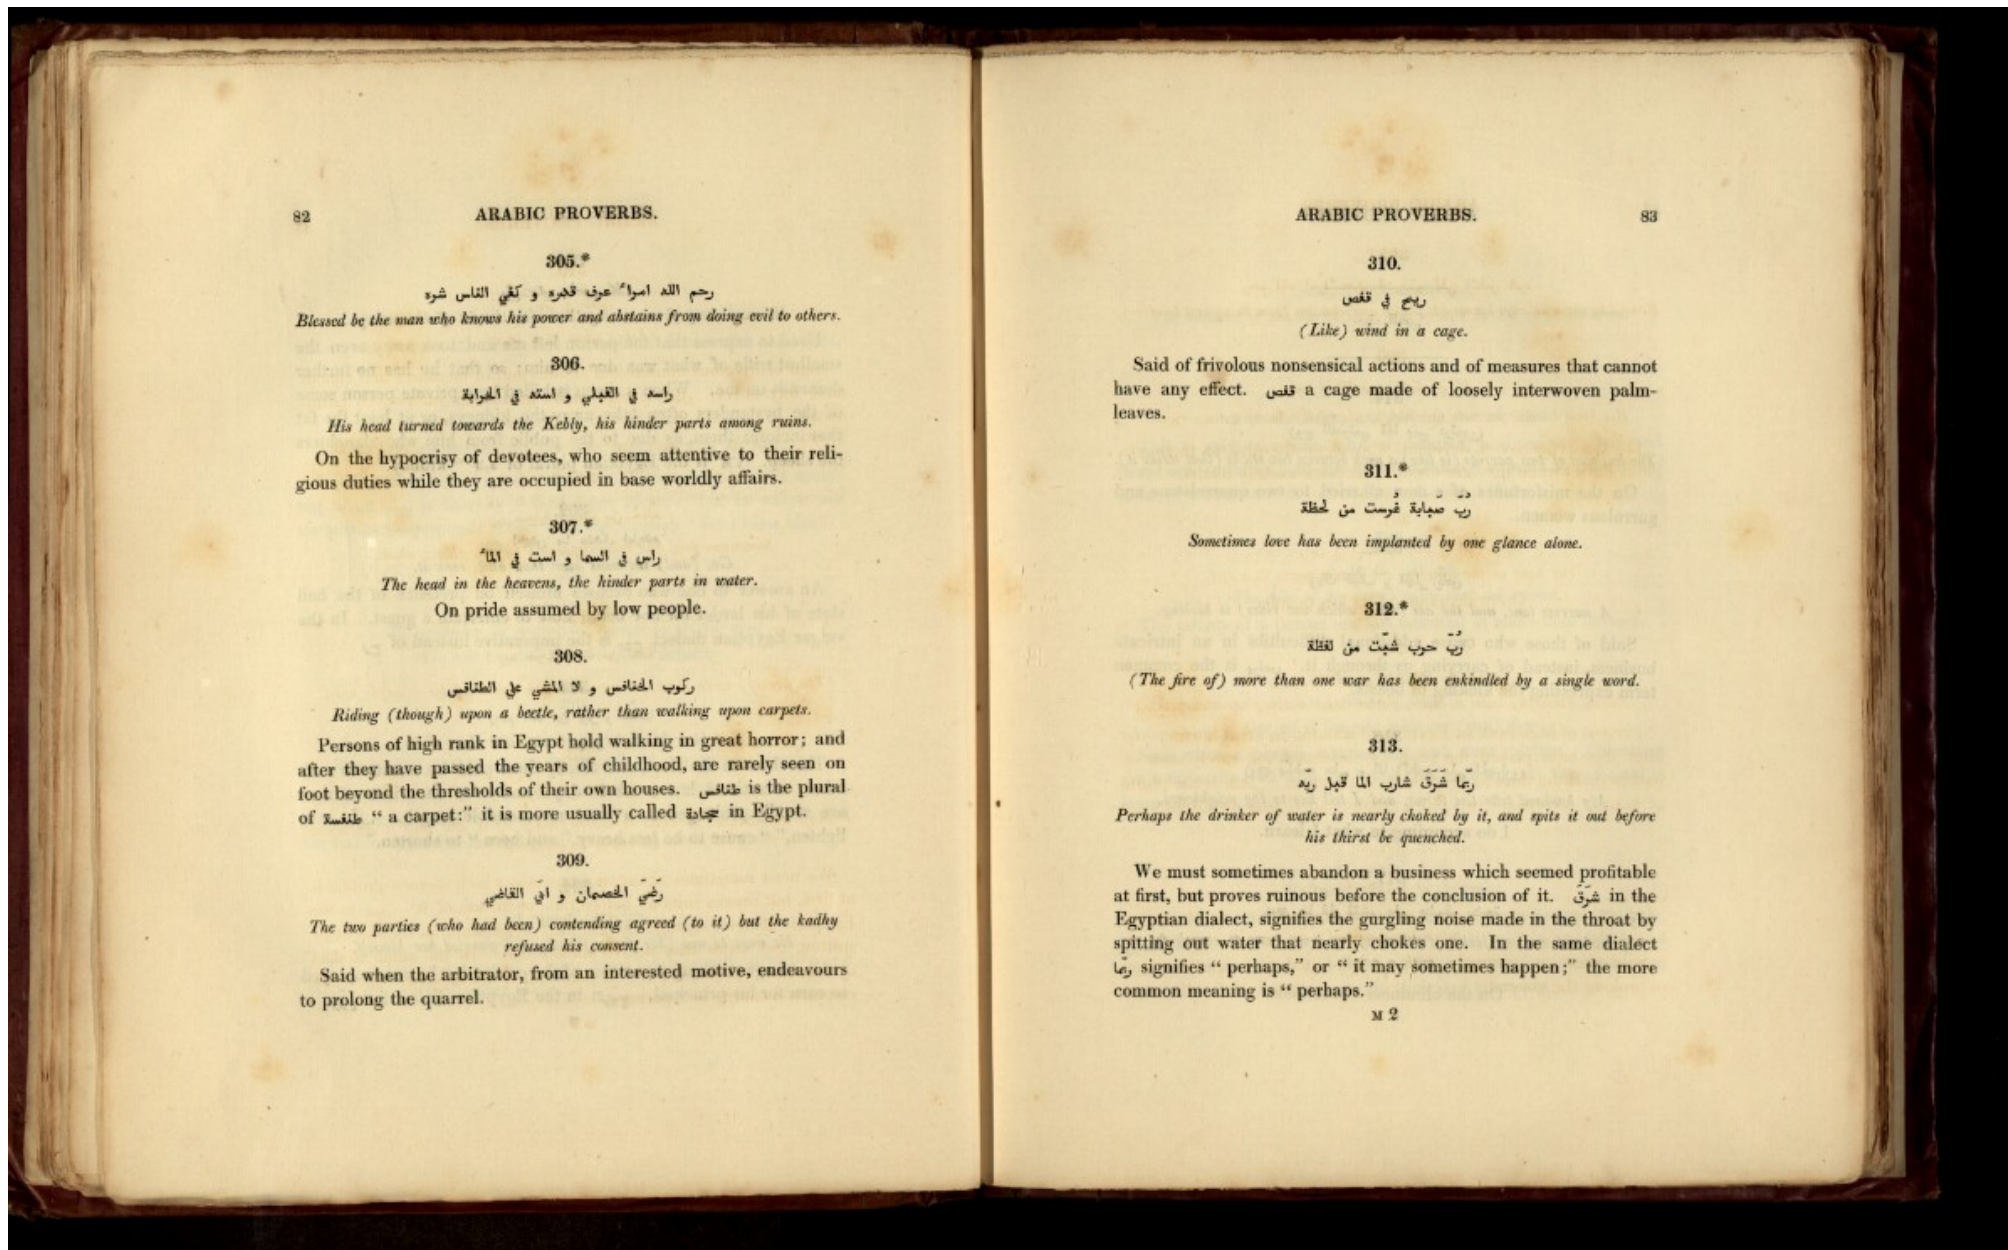 82
ARABIC PROVERBS.
305.*
رحم الله امراً عرف قدره و كفي الناس شره
Blessed be the man who knows his power and abstains from doing evil to others.
306.
راسه في القبلي و استه في الخرابة
His head turned towards the Kebly, his hinder parts among ruins.
On the hypocrisy of devotees, who seem attentive to their reli-
gious duties while they are occupied in base worldly affairs.
307.*
راس في السما و است في الماء
The head in the heavens, the hinder parts in water.
On pride assumed by low people.
308.
ركوب الخنافس و لا المشي علي الطنافس
Riding (though) upon a beetle, rather than walking upon carpets.
Persons of high rank in Egypt hold walking in great horror; and
after they have passed the years of childhood, are rarely seen on
foot beyond the thresholds of their own houses. طنافس is the plural
of طنفسة “ a carpet:” it is more usually called سجادة in Egypt.
309.
رَضيَ الخصمان و ابَي القاضي
The two parties (who had been) contending agreed (to it) but the kadhy
refused his consent.
Said when the arbitrator, from an interested motive, endeavours
to prolong the quarrel.
ARABIC PROVERBS.
83
310.
ريح في قفص
(Like) wind in a cage.
Said of frivolous nonsensical actions and of measures that cannot
have any effect. قفص a cage made of loosely interwoven palm-
leaves.
311.*
رُبَّ صَبابة غُرست من لحظة
Sometimes love has been implanted by one glance alone.
312.*
رُبَّ حرب شبّت من لفظة
(The fire of) more than one war has been enkindled by a single word.
313.
ربّما شَرَقَ شارب الما قبل ريّه
Perhaps the drinker of water is nearly choked by it, and spits it out before
his thirst be quenched.
We must sometimes abandon a business which seemed profitable
at first, but proves ruinous before the conclusion of it. شَرَقَ in the
Egyptian dialect, signifies the gurgling noise made in the throat by
spitting out water that nearly chokes one. In the same dialect
ربّما signifies “ perhaps,” or “ it may sometimes happen;” the more
common meaning is “ perhaps.”
M 2